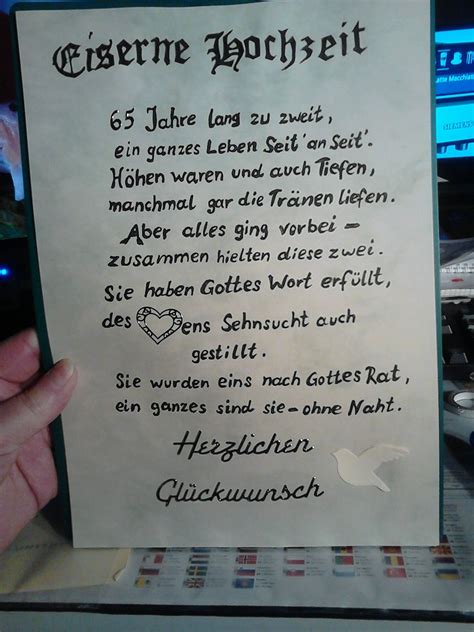 Eiserne Hochzeit
65 Jahre lang zu zweit,
ein ganzes Leben Seit' an Seit'.
Höhen waren und auch Tiefen,
manchmal gar die Tränen liefen.
Aber alles ging vorbei –
zusammen hielten diese zwei.
Sie haben Gottes Wort erfüllt,
des ens Sehnsucht auch
gestillt.
Sie wurden eins nach Gottes Rat,
ein ganzes sind sie – ohne Naht.
Herzlichen
Glückwunsch
atte Macchiat
SIEMENS